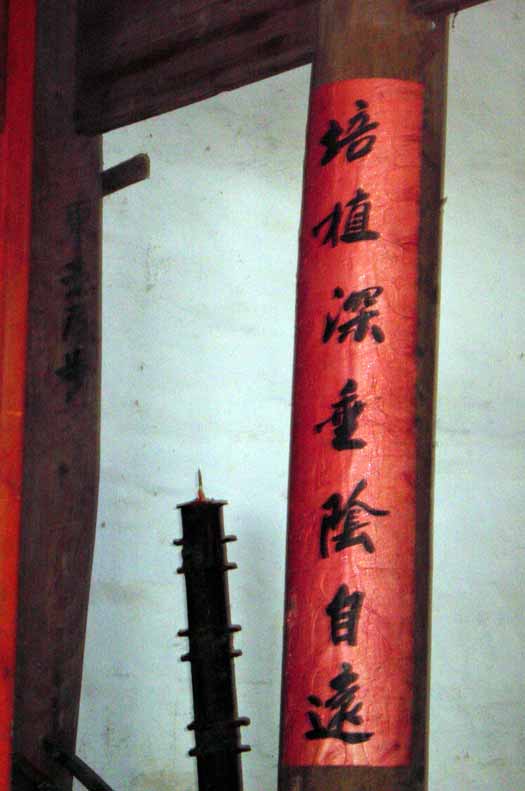 培植深垂陰自遠